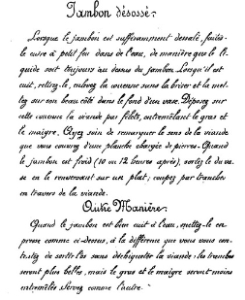 Jambon désossé.
Lorsque le jambon est suffisamment dessalé, faites-
le cuire à petit feu dans de l'eau, de manière que le li-
quide soit toujours au dessus du jambon. Lorsqu'il est
cuit, retirez-le, enlevez la couenne sans la briser et la met-
tez sur son beau côté dans le fond d'un vase. Déposez sur
cette couenne la viande par filets, entremêlant le gras et
le maigre. Ayez soin de remarquer le sens de la viande
que vous couvrez d'une planche chargée de pierres. Quand
le jambon est froid (10 ou 12 heures après), sortez-le du va-
se en le renversant sur un plat; coupez par tranches
en travers de la viande.
Autre Manière.
Quand le jambon est bien cuit à l'eau, mettez-le en
presse comme ci-dessus, à la différence que vous vous con-
tentez de sortir l'os sans déchiqueter la viande. Les tranches
seront plus belles, mais le gras et le maigre seront moins
entremêlés. Servez comme l'autre.